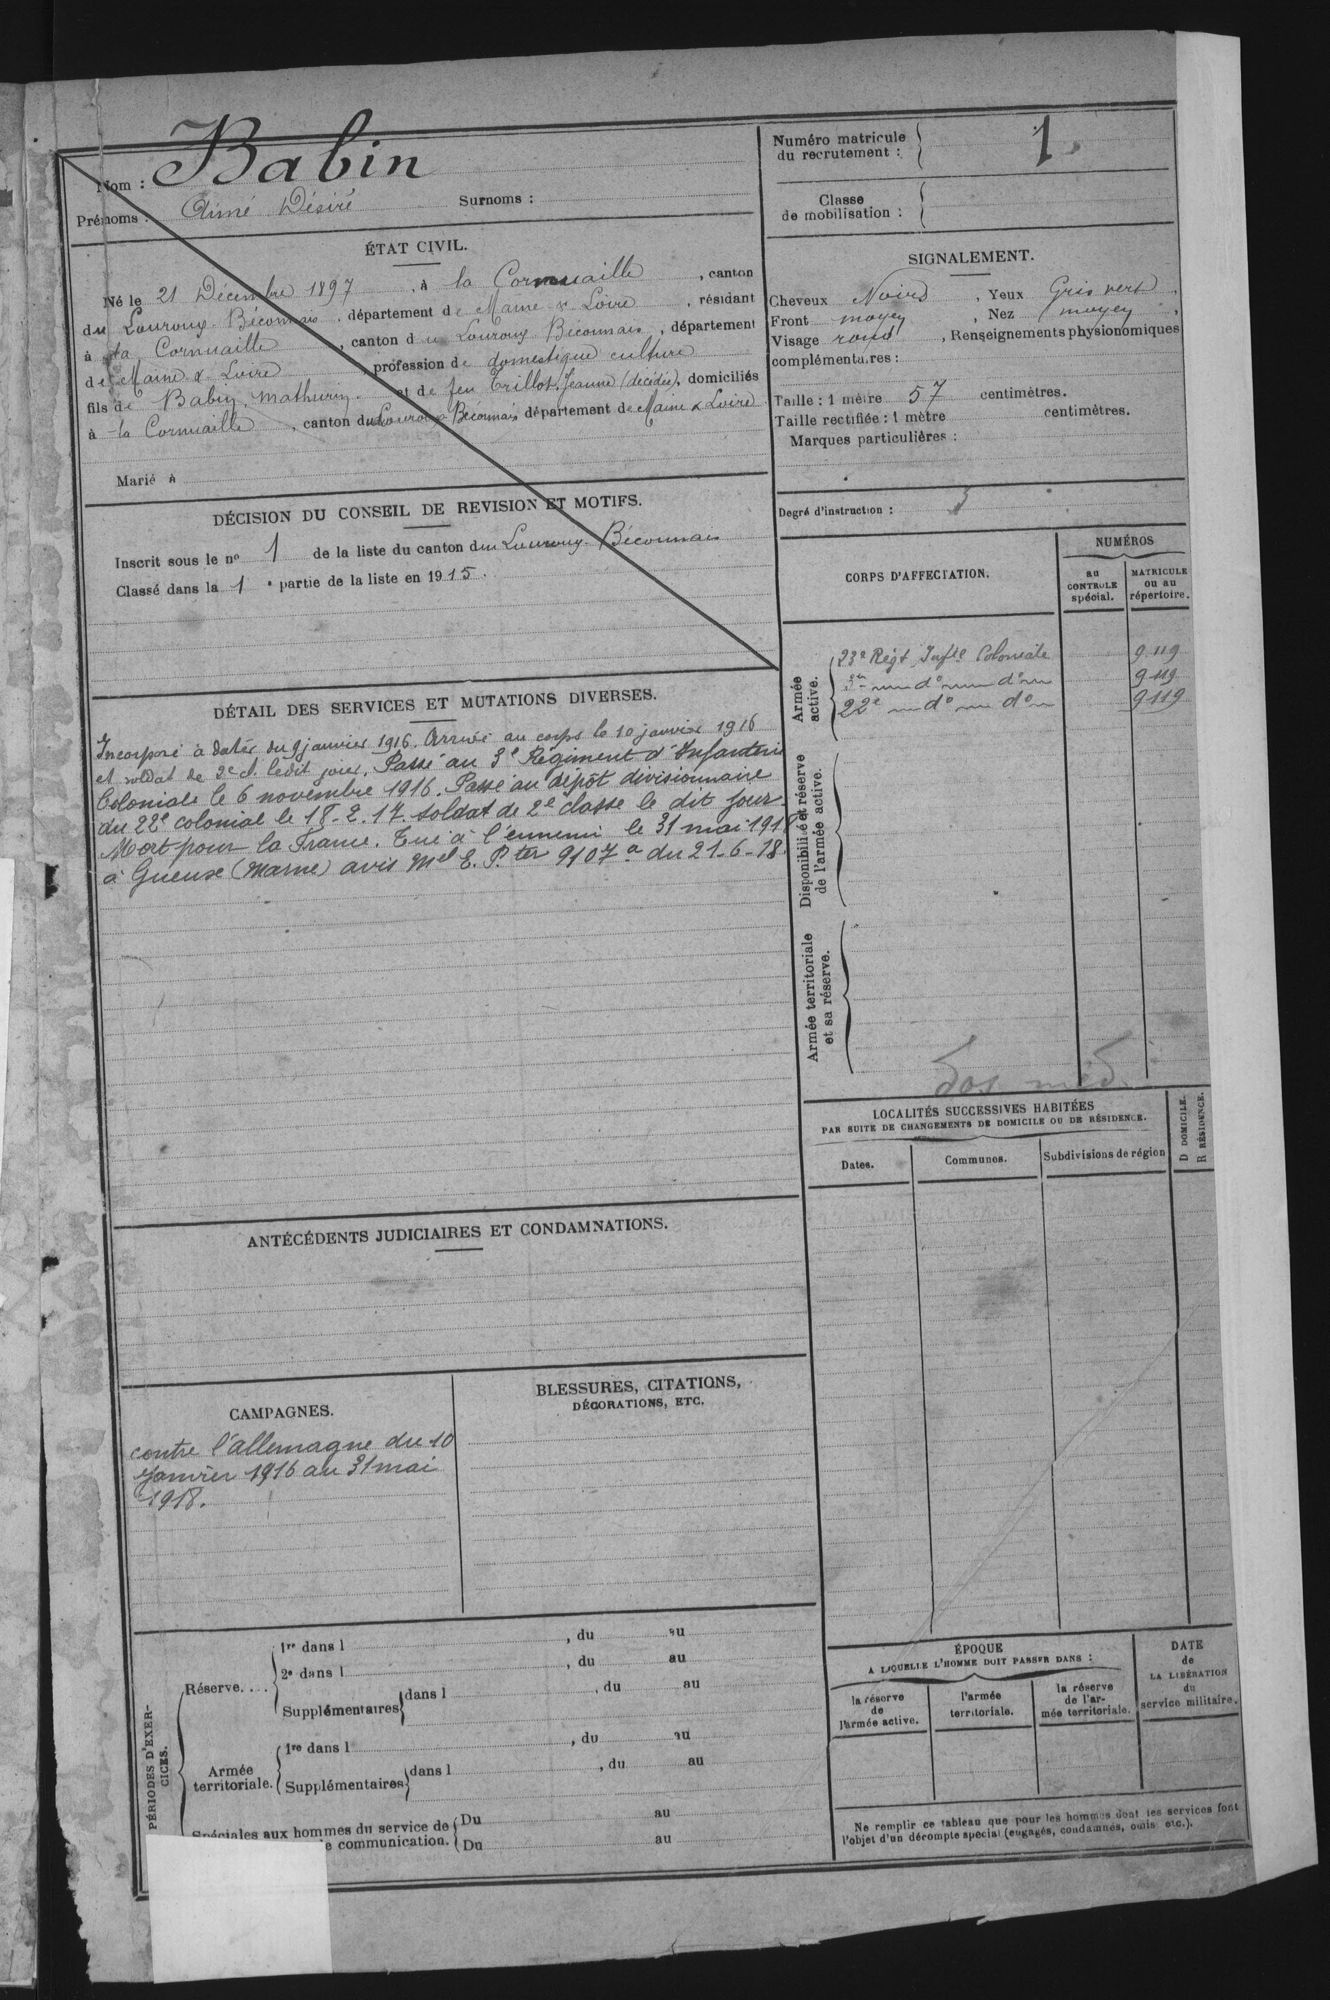 Nom : Babin
Prénoms : Aimé Désiré Surnoms :
ÉTAT CIVIL.
Né le 21 Décembre 1897, à la Cornuaille, canton
du Louroux-Béconnais, département de Maine & Loire, résidant
à la Cornuaille, canton du Louroux Béconnais, département
de Maine & Loire, profession de domestique culture
fils de Babin, Mathurin et de feu Trillot, Jeanne (décédée), domiciliés
à la Cornuaille, canton du Louroux Béconnais département de Maine & Loire
Marié à
DÉCISION DU CONSEIL DE REVISION ET MOTIFS.
Inscrit sous le nº 1 de la liste du canton du Louroux-Béconnais
Classé dans la 1e partie de la liste en 1915.
DÉTAIL DES SERVICES ET MUTATIONS DIVERSES.
Incorporé à dater du 9 janvier 1916. Arrivé au corps le 10 janvier 1916
et soldat de 2e cl. ledit jour. Passé au 3e Régiment d'Infanterie
Coloniale le 6 novembre 1916. Passé au dépôt divisionnaire
du 22e colonial le 18-2-17. soldat de 2e classe le dit jour.
Mort pour la France. Tué à l'ennemi le 31 mai 1918
à Gueuse (Marne) avis Mel E. P. ter 9107 a du 21-6-18.
ANTÉCÉDENTS JUDICIAIRES ET CONDAMNATIONS.
CAMPAGNES.
contre l'allemagne du 10
Janvier 1916 au 31 mai
1918.
BLESSURES, CITATIONS,
DÉCORATIONS, ETC.
PÉRIODES D'EXER-
CICES.
Réserve....
1re dans l , du au
2e dans l , du au
Supplémentaires dans l , du au
Armée
territoriale.
1re dans l , du au
Supplémentaires dans l , du au
Spéciales aux hommes du service de
communication.
Du au
Du au
Numéro matricule
du recrutement : 1.
Classe
de mobilisation :
SIGNALEMENT.
Cheveux Noirs, Yeux Gris vert,
Front moyen, Nez moyen,
Visage rond, Renseignements physionomiques
complémentaires :
Taille : 1 mètre 57 centimètres.
Taille rectifiée : 1 mètre centimètres.
Marques particulières :
Degré d'instruction : 3
CORPS D'AFFECTATION.
NUMÉROS
au
CONTROLE
spécial.
MATRICULE
ou au
répertoire.
Armée
active.
23e Régt Inftie Coloniale 9119
3e do do 9119
22e do do 9119
Disponibilité et réserve
de l'armée active.
Armée territoriale
et sa réserve.
dos méd.
LOCALITÉS SUCCESSIVES HABITÉES
PAR SUITE DE CHANGEMENTS DE DOMICILE OU DE RÉSIDENCE.
Dates.
Communes.
Subdivisions de région
D DOMICILE.
R RÉSIDENCE.
ÉPOQUE
A LAQUELLE L'HOMME DOIT PASSER DANS :
la réserve
de
l'armée active.
l'armée
territoriale.
la réserve
de l'ar-
mée territoriale.
DATE
de
LA LIBÉRATION
du
service militaire.
Ne remplir ce tableau que pour les hommes dont les services font
l'objet d'un décompte spécial (engagés, condamnés, omis etc.).